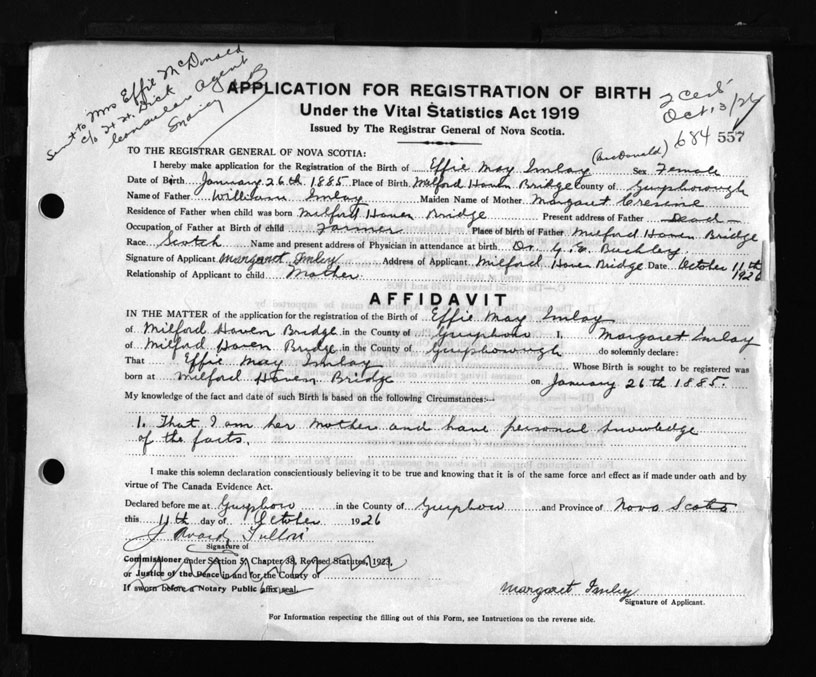 Sent to Mrs Effie McDonald
c/o H. H. Dick
Consular Agent
Sydney CB
APPLICATION FOR REGISTRATION OF BIRTH
Under the Vital Statistics Act 1919
Issued by The Registrar General of Nova Scotia.
2 Certs
Oct. 13/26
684 557
TO THE REGISTRAR GENERAL OF NOVA SCOTIA:
(MacDonald)
I hereby make application for the Registration of the Birth of Effie May Imlay Sex Female
Date of Birth January 26th 1885 Place of Birth Milford Haven Bridge County of Guysborough
Name of Father William Imlay Maiden Name of Mother Margaret
Residence of Father when child was born Milford Haven Bridge Present address of Father Dead
Occupation of Father at Birth of child Farmer Place of birth of Father Milford Haven Bridge
Race Scotch Name and present address of Physician in attendance at birth Dr. G. E. Buckley
Signature of Applicant Margaret Imlay Address of Applicant Milford Haven Bridge Date October 11th 1926
Relationship of Applicant to child Mother
AFFIDAVIT
IN THE MATTER of the application for the registration of the Birth of Effie May Imlay
of Milford Haven Bridge in the County of Guysboro I, Margaret Imlay
of Milford Haven Bridge in the County of Guysborough do solemnly declare:
That Effie May Imlay Whose Birth is sought to be registered was
born at Milford Haven Bridge on January 26th 1885.
My knowledge of the fact and date of such Birth is based on the following Circumstances:—
1. That I am her mother and have personal knowledge
of the facts.
I make this solemn declaration conscientiously believing it to be true and knowing that it is of the same force and effect as if made under oath and by
virtue of The Canada Evidence Act.
Declared before me at Guysboro in the County of Guysboro and Province of Nova Scotia
this 11th day of October 1926
J
Signature of
Commissioner under Section 5, Chapter 38, Revised Statutes, 1923,
or Justice of the Peace in and for the County of
If sworn before a Notary Public affix seal.
Margaret Imlay
Signature of Applicant.
For Information respecting the filling out of this Form, see Instructions on the reverse side.